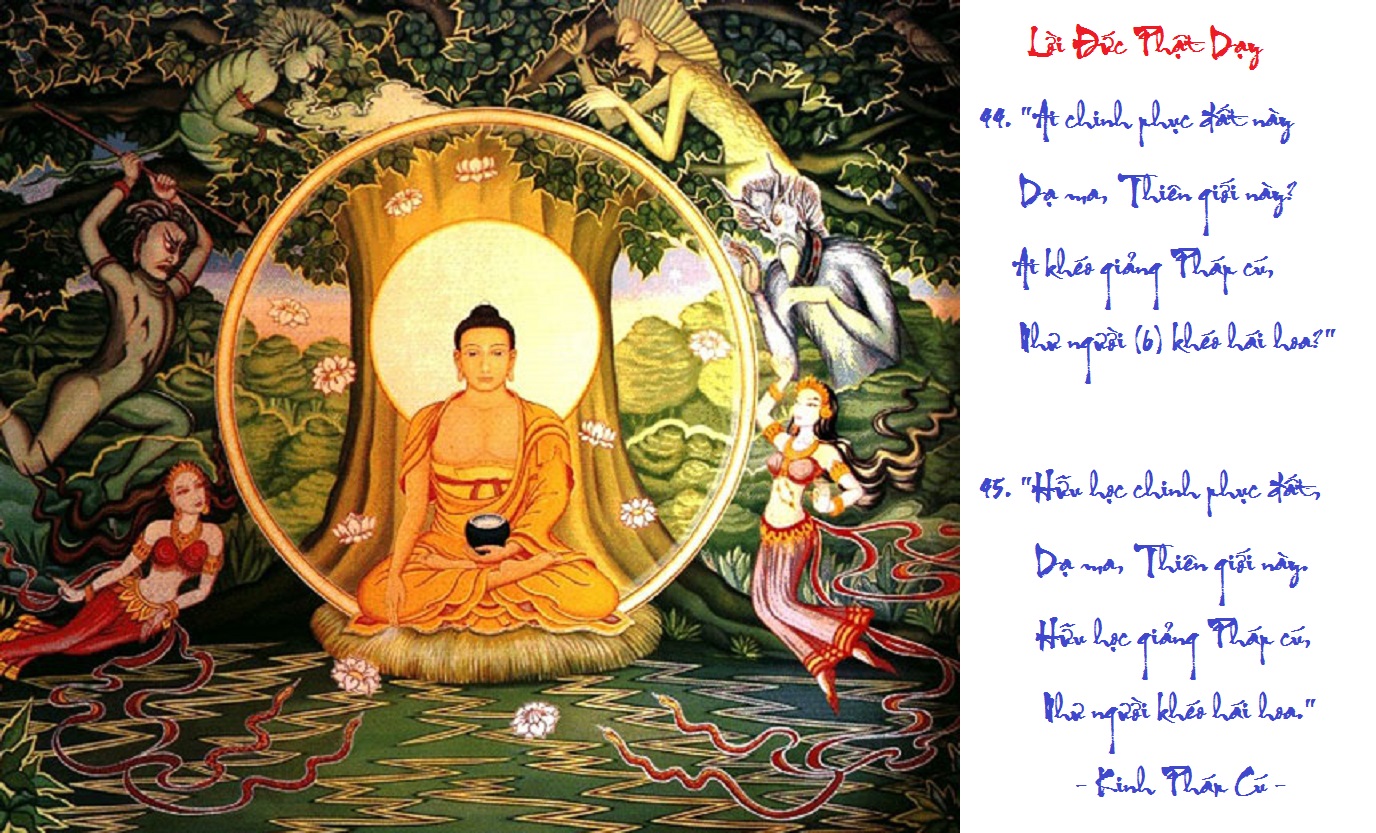 Lời Đức Phật Dạy
44. "Ai chinh phục đất này
Dạ ma, Thiên giới này?
Ai khéo giảng Pháp cú,
Như người (6) khéo hái hoa?"
45. "Hữu học chinh phục đất,
Dạ ma, Thiên giới này.
Hữu học giảng Pháp cú,
Như người khéo hái hoa."
- Kinh Pháp Cú -